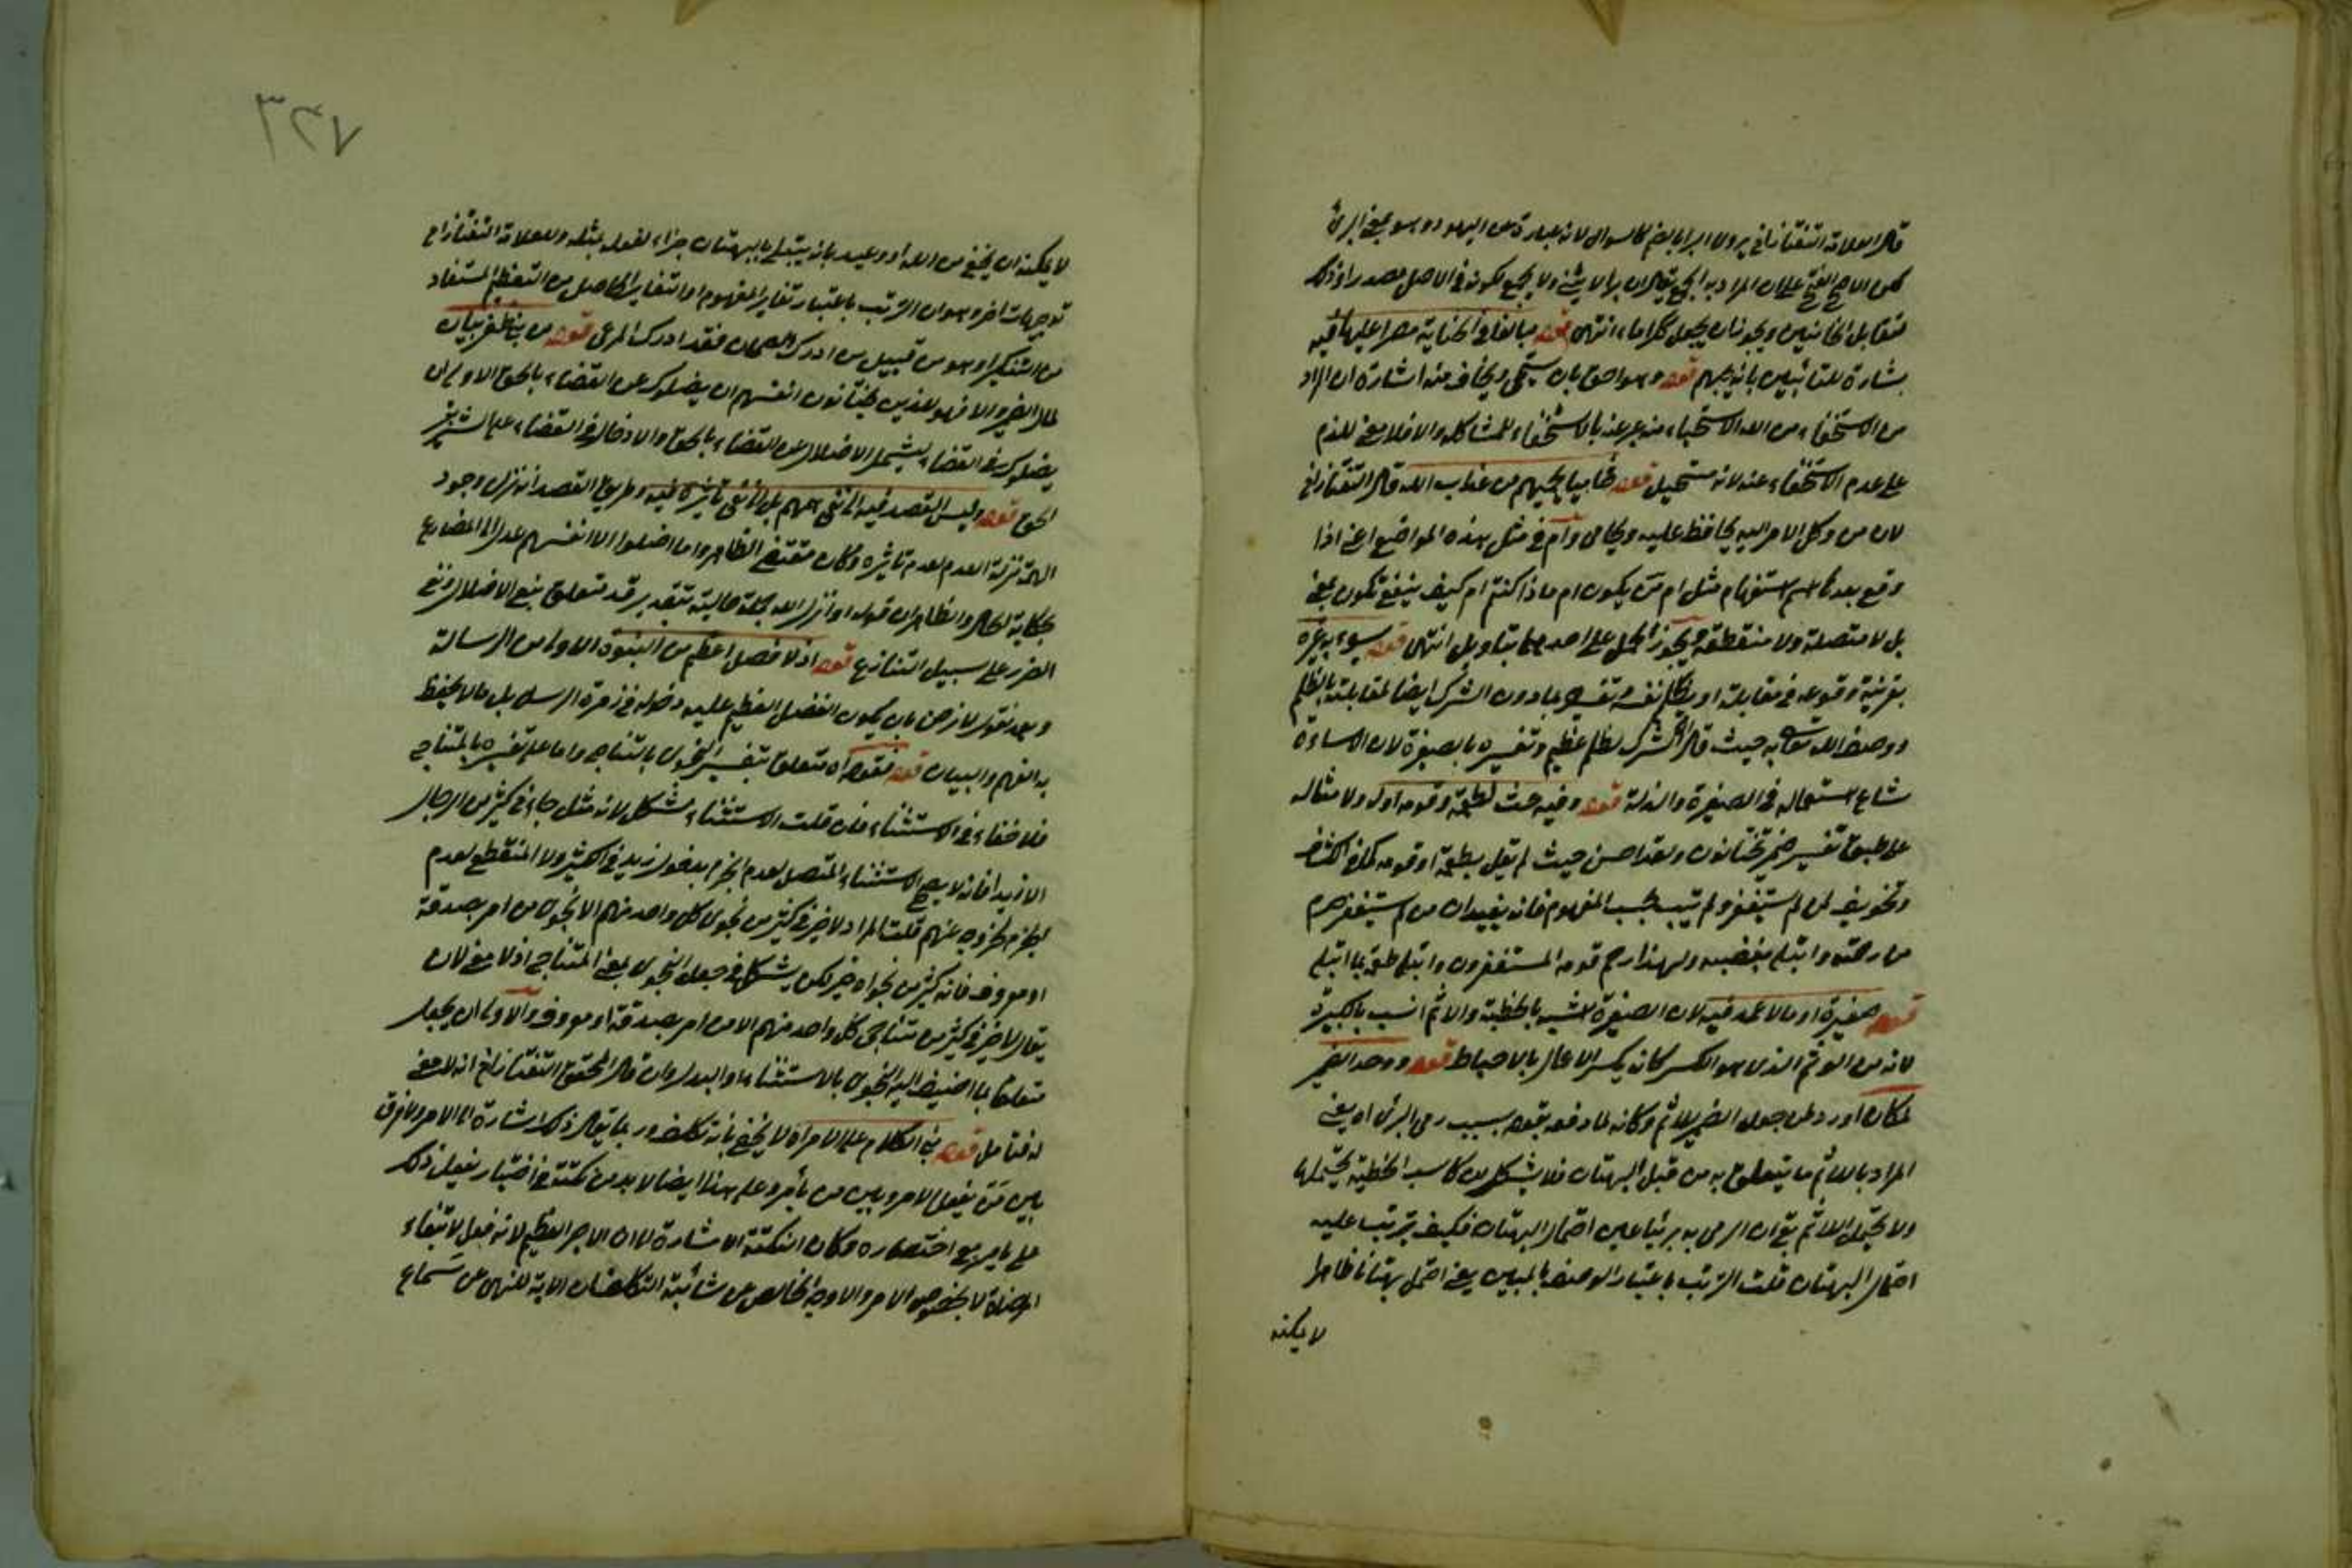 قال العلامة التفتازاني يروى البرا بالضم كالسوال لانه عبارة عن اليهود وهو بمعنى البرئ
لكن الاصح الفتح على ان المراد به الجمع يقال ان برا لا يثنى ولا يجمع لكونه في الاصل مصدرا وذلك
مبالغا في الخيانة مصرا عليها فيه
بشارة للتائبين بانه يحبهم قوله وهو احق بان يستحيى ويخاف منه اشارة ان المراد
من الاستخفاء من الله الاستحياء منه عبر عنه بالاستخفاء للمشاكلة والا فلا معنى للذم
على عدم الاستخفاء عنه لانه مستحيل قوله محاميا يحميهم من عذاب الله قال التفتازاني
لان من وكل الامر اليه يحافظ عليه ويحامى وام في مثل هذه المواضع اعنى اذا
وقع بعدها اسم استفهام مثل ام من يكون ام ماذا كنتم ام كيف ينفع تكون بمعنى
بل لا متصلة ولا منقطعة ويجوز الحمل على احدهما بتاويل انتهى قوله يسوء به غيره
بقرينة وقوعه في مقابلة او يظلم نفسه وتفسيره بما دون الشرك ايضا لمقابلته بالظلم
ووصف الله تعالى به حيث قال ان الشرك لظلم عظيم وتفسيره بالصغيرة لان الاساءة
شاع استعماله في الصغيرة والذلة قوله وفيه حث لطعمة وقومه اه ولا مثاله
على طبق تفسير ضمير يختانون ولقد احسن حيث لم يقل بطعمة او قومه كما في الكشاف
وتخويف لمن لم يستغفر ولم يتب بحسب المفهوم فانه يفيد ان من لم يستغفر حرم
من رحمته وابتلى بغضبه ولهذا رحم قومه المستغفرون وابتلى طعمة بما ابتلى
قوله صغيرة او ما لا عمد فيه لان الصغيرة اشبه بالخطيئة والاثم انسب بالكبيرة
لانه من الوثم الذي هو الكسر كانه يكسر الاعمال بالاحباط قوله ووحد الضمير
لمكان او رد على جعل الضمير للاثم وكانه لما دفعه بقوله بسبب رمى البرئ اه يعنى
المراد بالاثم ما يتعلق به من قبل البهتان فلا يشكل ان كاسب الخطيئة يحتملها
ولا يحتمل الاثم بقى ان الرمى به بريئا عين احتمال البهتان فكيف يترتب عليه
احتمال البهتان قلت الترتب باعتبار الوصف بالمبين يعنى احتمل بهتانا ظاهرا
لا يمكنه
٣٢٧
لا يمكنه ان يخفى من الله او وعيد بانه يبتلى بالبهتان جزاء لفعله بمثله وللعلامة التفتازانى
توجيهات اخر وهو ان الترتب باعتبار تغاير المفهوم او التغاير الحاصل من التعظيم المستفاد
من التنكير او هو من قبيل من ادرك الصمان فقد ادرك المرعى قوله من بنى ظفر بيان
لمال الضمير والا فهو للذين يختانون انفسهم ان يضلوك عن القضاء بالحق الاولى ان
يضلوك في القضاء ليشمل الاضلال عن القضاء بالحق والادخال في القضاء على
الحق قوله وليس القصد فيه الى نفى همهم بل الى نفى تاثيره فيه وطريق القصد انه نزل وجود
الهم منزلة العدم لعدم تاثيره وكان مقتضى الظاهر وما اضلوا الا انفسهم عدل الى المضارع
لحكاية الحال والظاهر ان قوله وانزل الله جملة حالية بتقدير قد متعلق بنفى الاضلال ونفى
الضرر على سبيل التنازع قوله اذ لا فضل اعظم من النبوة الاولى من الرسالة
وبعد نقول لا رهن بان يكون الفضل العظيم عليه دخوله في زمرة الرسل بل ما لا يحفظ
به الفهم والبيان قوله فقوله اه متعلق بتفسير النجوى بالتناجى واما على تفسيره بالمتناجى
فلا خفاء في الاستثناء فان قلت الاستثناء مشكل لانه مثل جاءنى كثير من الرجال
الا زيدا فانه لا يصح الاستثناء المتصل لعدم الجزم بدخول زيد في الكثير ولا المنقطع لعدم
الجزم بخروجه عنهم قلت المراد لا خير في كثير من نجوى كل واحد منهم الا نجوى من امر بصدقة
او معروف فانه كثير من نجواه خير لكن يشكل في جعل النجوى بمعنى المتناجى اذ لا معنى لان
يقال لا خير في كثير من متناجى كل واحد منهم الا من امر بصدقة او معروف والاولى ان يجعل
متعلقا بما اضيف اليه النجوى بالاستثناء او البدل وان قال المحقق التفتازانى انه لا معنى
له فتامل قوله بنى الكلام على الامر اه لا يخفى بانه تكلف وربما يقال ذلك اشارة الى الامر ولا فرق
بين من يفعل الامر وبين من يأمر وعلى هذا ايضا لا بد من نكتة في اختيار يفعل ذلك
على يامر مع اختصاره وكان النكتة الاشارة الى ان الاجر العظيم لانه فعل لابتغاء
المرضاة لا لخصوص الامر والاوجه الخالص عن شائبة التكلف ان الاية للنهى عن سماع